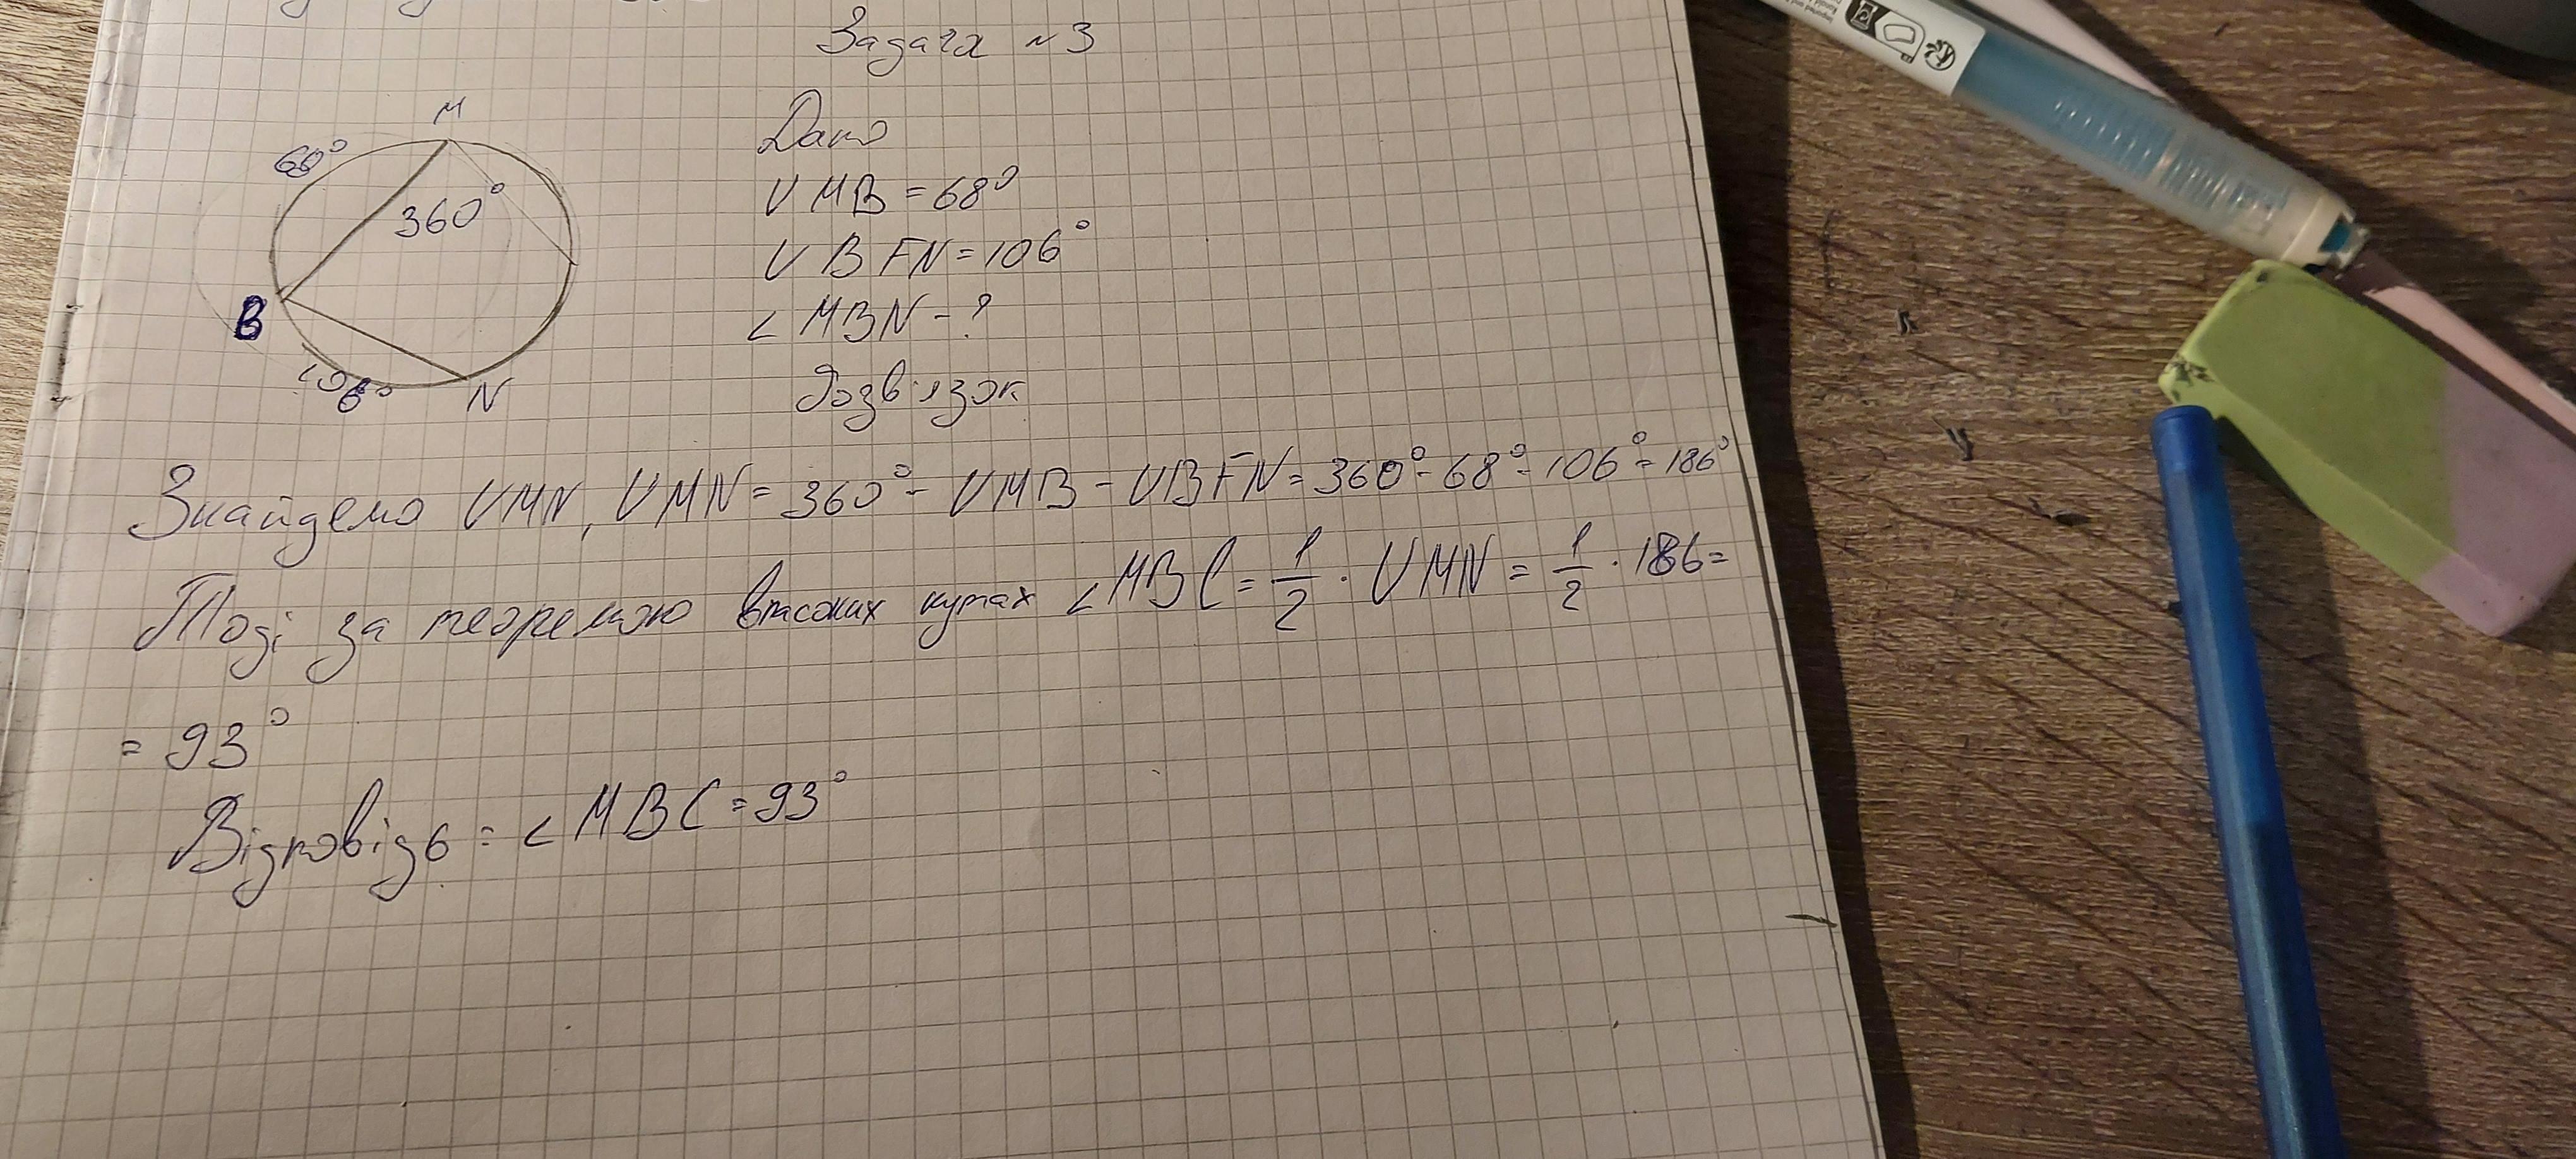 Задача №3
M
68°
360°
B
106°
N
Дано
∪ MB = 68°
∪ BFN = 106°
∠ MBN - ?
Розв'язок
Знайдемо ∪MN, ∪MN = 360° - ∪MB - ∪BFN = 360° - 68° - 106° = 186°
Тоді за теоремою вписаних кутах ∠MBC = 1/2 · ∪MN = 1/2 · 186 =
= 93°
Відповідь: ∠MBC = 93°